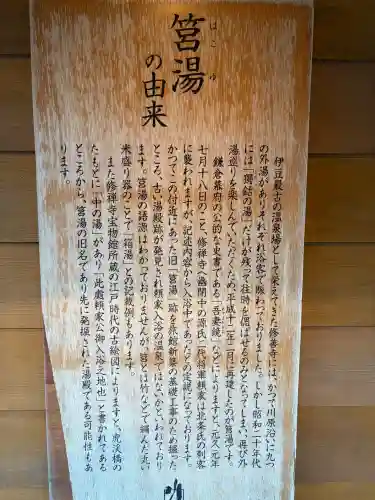 筥湯
はこゆ
の由来
伊豆最古の温泉場として栄えてきた修善寺には、かつて川原沿いに九つ
の外湯がありそれぞれ浴客で賑わっておりました。しかし昭和二十年代
には「独鈷の湯」だけが残って往時を偲ばせるのみとなってしまい再び外
湯巡りを楽しんでいただくため、平成十二年二月に再建したのが筥湯です。
鎌倉幕府の公的な史書である「吾妻鏡」などによりますと、元久元年
七月十八日のこと、修禅寺へ幽閉中の源氏二代将軍頼家は北条氏の刺客
に襲われますが、記述内容から入浴中であったとの定説になっております。
かつてこの付近にあった旧「筥湯」跡を旅館新築の基礎工事のため掘った
ところ、古い湯殿跡が発見され頼家入浴の温泉ではないかといわれており
ます。筥湯の語源はわかっておりませんが、筥とは竹などで編んだ丸い
米盛り器のことで「箱湯」との記載例もあります。
また修禅寺宝物館所蔵の江戸時代の古絵図によりますと、虎渓橋の
たもとに「中の湯」があり「此處頼家公御入浴之地也」と書かれてある
ところから、筥湯の旧名であり先に発掘された湯殿である可能性もあ
ります。